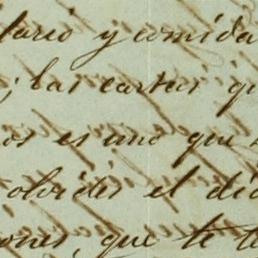 lario y comida
; las cartas qu
os es uno que s
olvides el dia
ones, que te te